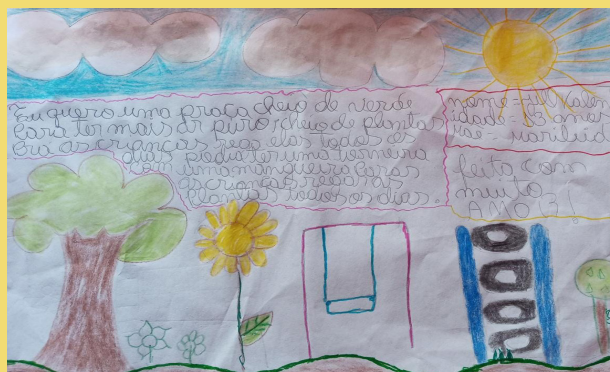 Eu quero uma praça cheio de verde
Para ter mais ar puro, cheio de planta
Pra as crianças rega elas todos os
dias. podia ter uma torneira
com uma mangueira para as
crianças rega as
plantas todos os dias.
nome =
idade =
mãe = mariluid
feita com
muito
AMOR!